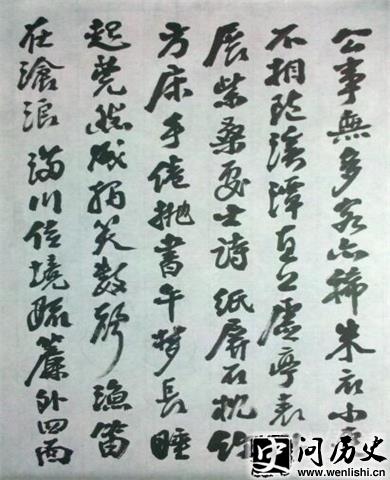 公事無多客亦稀朱衣小吏
不相隨溪潭直上虛亭表
展柴桑處士詩紙屏石枕竹
方床手倦拋書午夢長睡
起莞然成獨笑數聲漁笛
在滄浪滿川佳境疏簾外四面
问历史
www.wenlishi.cn